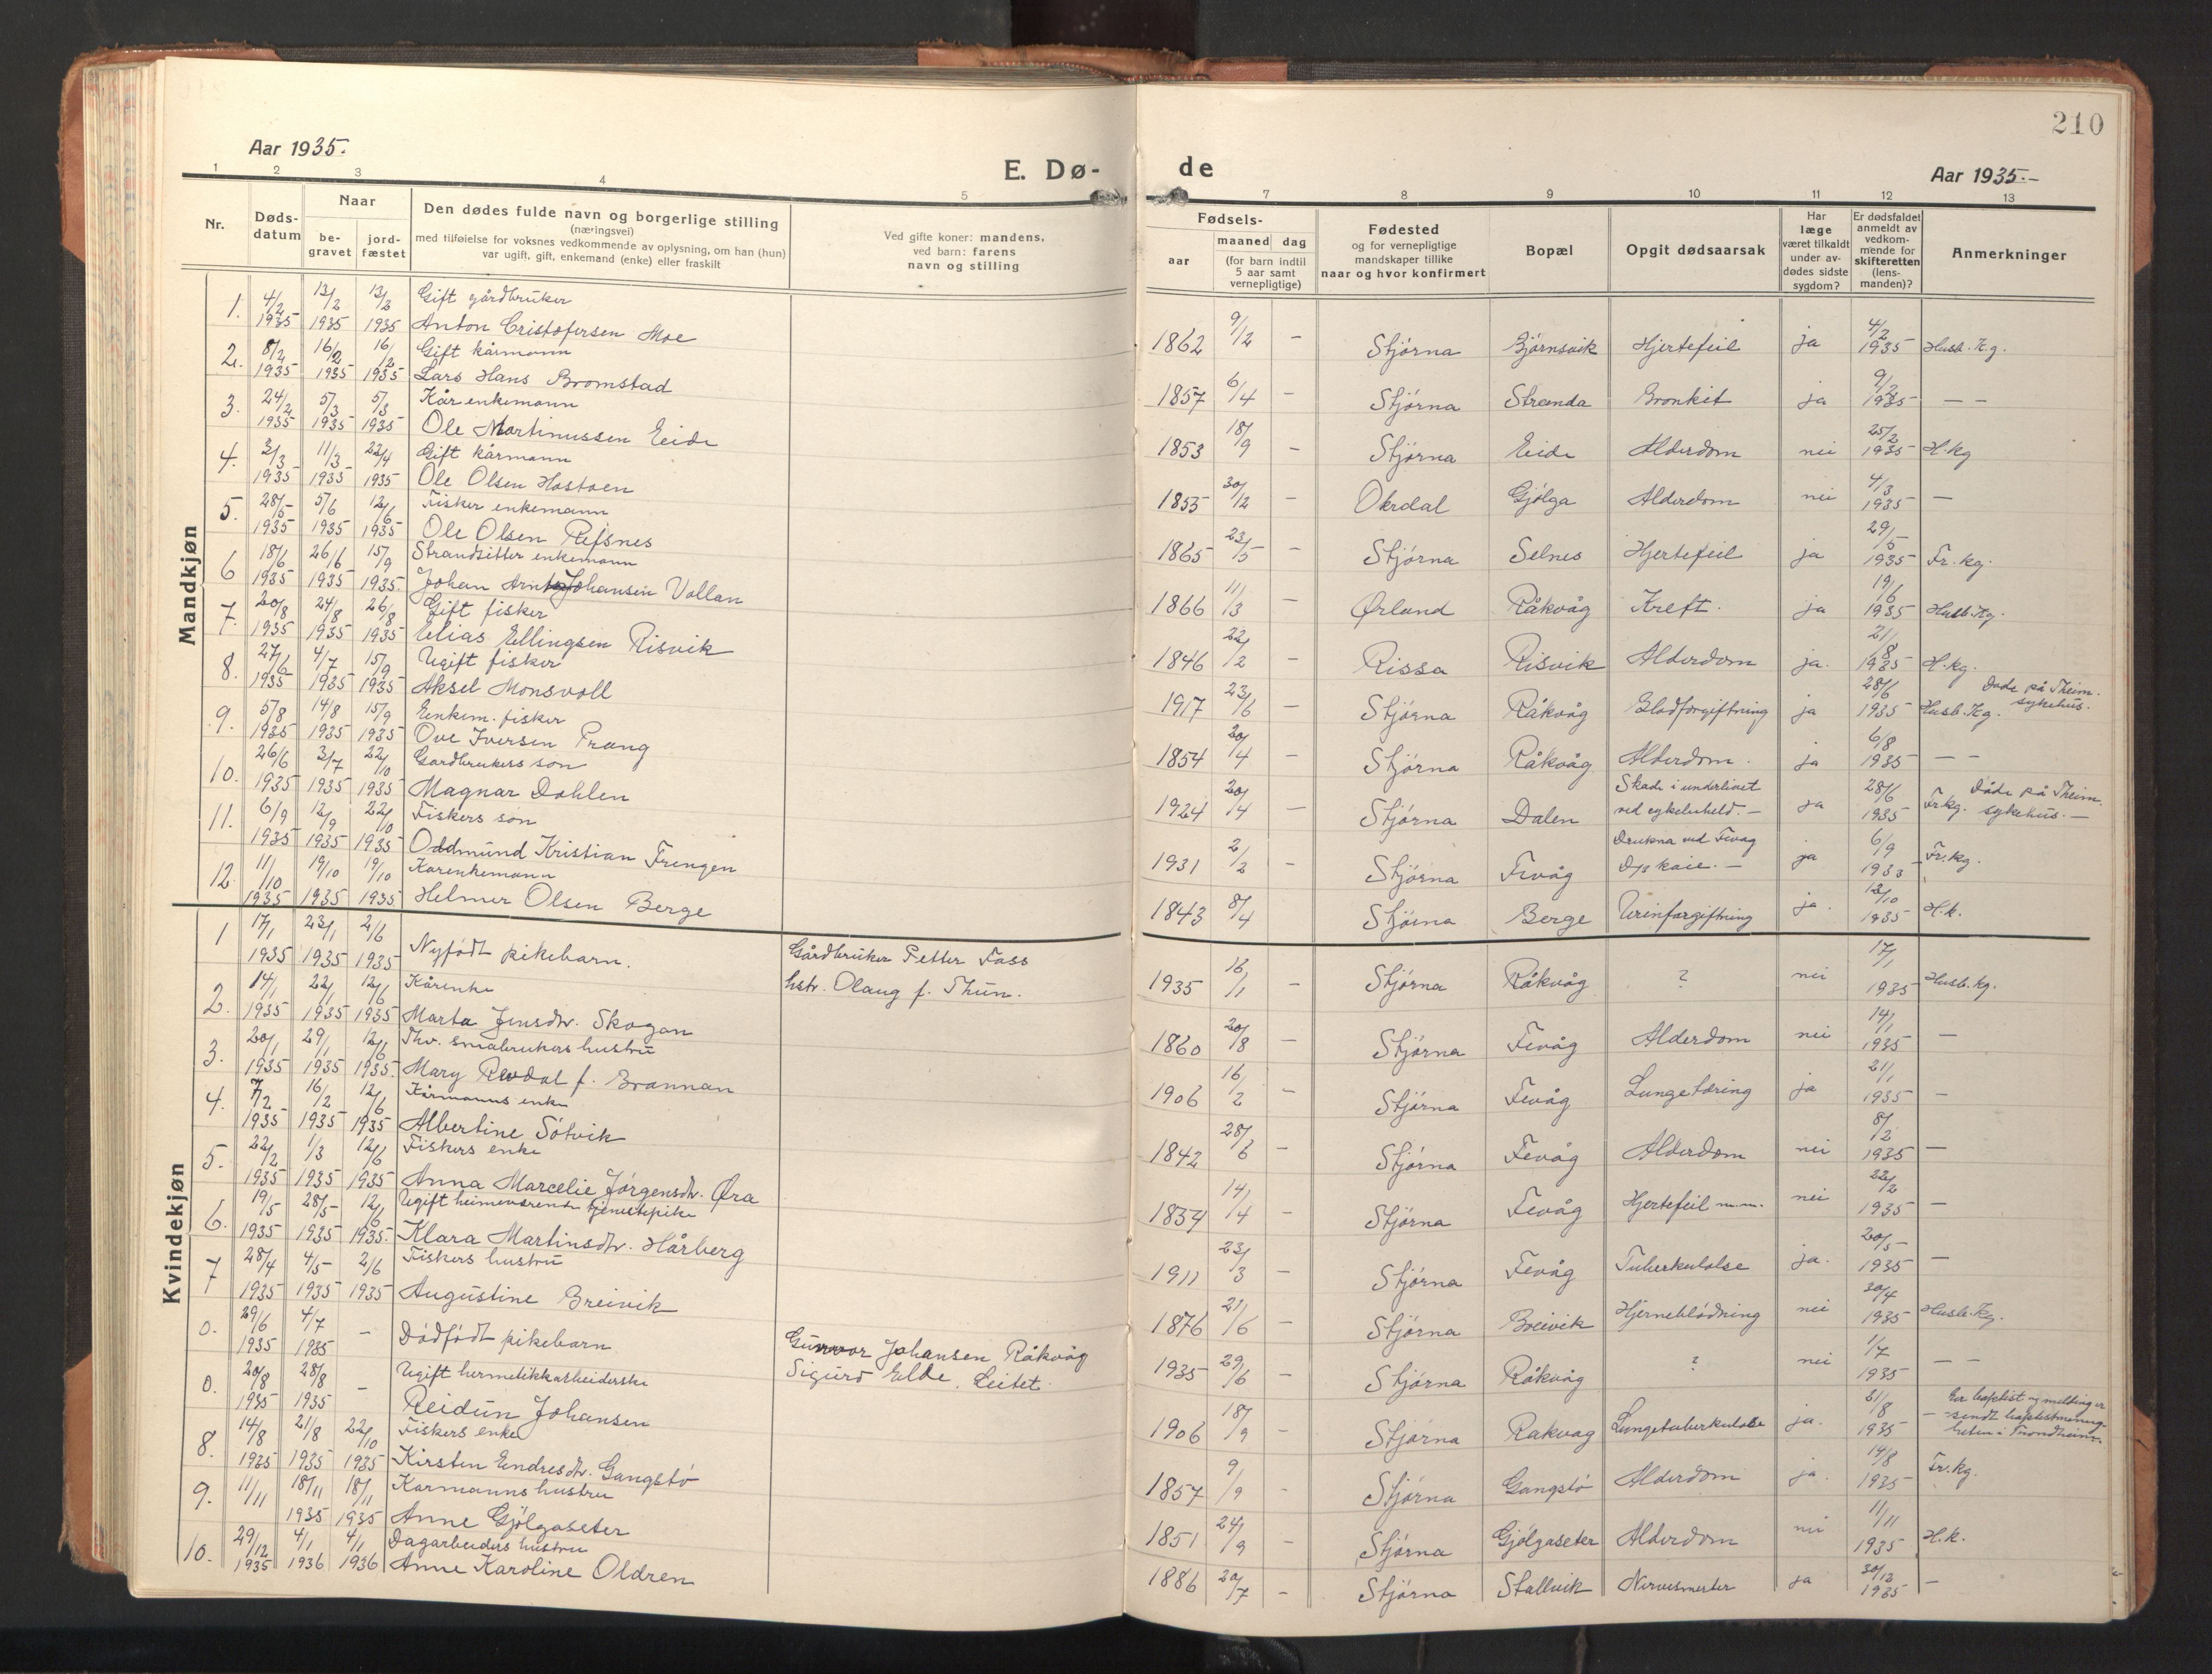 210
Aar 1935.
E. Dø-
de
Aar 1935.-
1 2 3 4 5 7 8 9 10 11 12 13
Nr.
Døds-
datum
Naar
be-
gravet
jord-
fæstet
Den dødes fulde navn og borgerlige stilling
(næringsvei)
med tilføielse for voksnes vedkommende av oplysning, om han (hun)
var ugift, gift, enkemand (enke) eller fraskilt
Ved gifte koner: mandens,
ved barn: farens
navn og stilling
Fødsels-
aar
maaned dag
(for barn indtil
5 aar samt
vernepligtige)
Fødested
og for vernepligtige
mandskaper tillike
naar og hvor konfirmert
Bopæl
Opgit dødsaarsak
Har
læge
været tilkaldt
under av-
dødes sidste
sygdom?
Er dødsfaldet
anmeldt av
vedkom-
mende for
skifteretten
(lens-
manden)?
Anmerkninger
Mandkjøn
1. 4/2 1935 13/2 1935 13/2 1935 Gift gårdbruker
Anton Cristofersen Moe
1862 9/12 - Stjørna Bjørnsvik Hjertefeil ja 4/2 1935 Husb. Kg.
2. 8/2 1935 16/2 1935 16/2 1935 Gift kårmann
Lars Hans Bromstad
1857 6/4 - Stjørna Stranda Bronkit ja 9/2 1935 - -
3. 24/2 1935 5/3 1935 5/3 1935 Kår enkemann
Ole Martinussen Eide
1853 18/9 - Stjørna Eide Alderdom nei 25/2 1935 H.kg
4. 2/3 1935 11/3 1935 22/4 1935 Gift kårmann
Ole Olsen Hastoen
1855 30/12 - Okrdal Gjølga Alderdom nei 4/3 1935 -
5. 28/5 1935 5/6 1935 12/6 1935 Fisker enkemann
Ole Olsen Refsnes
1865 23/5 - Stjørna Selnes Hjertefeil ja 29/5 1935 Fr. kg.
6 18/6 1935 26/6 1935 15/9 1935. Strandsitter enkemann
Johan Johansen Vollan
1866 11/3 - Ørland Råkvåg Kreft. ja 19/6 1935 Husb. Kg.
7. 20/8 1935 24/8 1935 26/8 1935 Gift fisker
Elias Ellingsen Risvik
1846 22/2 - Rissa Risvik Alderdom ja. 21/8 1935 H.kg.
8. 27/6 1935 4/7 1935 15/9 1935 Ugift fisker
Aksel Monsvoll
1917 23/6 - Stjørna Råkvåg Blodforgiftning ja 28/6 1935 Husb. Kg. Døde på Theim. sykehus.
9. 5/8 1935 14/8 1935 15/9 1935 Enkem. fisker
Ove Iversen Prang
1854 20/4 - Stjørna Råkvåg Alderdom. ja 6/8 1935 - -
10. 26/6 1935 3/7 1935 22/10 1935 Gardbrukers søn
Magnar Dahlen
1924 20/4 - Stjørna Dalen Skade i underlivet
ved sykeluheld. - ja 28/6 1935 Fr.kg. Døde på Theim. sykehus. -
11. 6/9 1935 12/9 1935 22/10 1935 Fiskers søn
Oddmund Kristian Frengen
1931 2/2 - Stjørna Fevåg Drukna ved Fevag
D/s kaie. - ja 6/9 1935 Fr.kg.
12. 11/10 1935 19/10 1935 19/10 1935 Kårenkemann
Helmer Olsen Berge
1843 8/4 Stjørna Berge Urinforgiftning ja. 12/10 1935 H.k.
Kvindekjøn
1 17/1 1935 23/1 1935 2/6 1935 Nyfødt pikebarn. Gårdbruker Petter Fass
hstr. Olaug f. Thun.
1935 16/1 - Stjørna Råkvåg ? nei 17/1 1935 Husb. kg.
2. 14/1 1935 22/1 1935 12/6 1935 Kårenke
Marta Jensdtr. Skogan
1860 20/8 - Stjørna Fevåg Alderdom nei 14/1 1935 -
3. 20/1 1935 29/1 1935 12/6 1935. Fhv. småbrukers hustru
Mary Revdal f. Brannan
1906 16/2 - Stjørna Fevåg Lungetæring ja 21/1 1935 -
4. 7/2 1935 16/2 1935 12/6 1935 Kårmanns enke
Albertine Søtvik
1842 28/6 - Stjørna Fevåg Alderdom nei 8/2 1935 -
5. 22/2 1935 1/3 1935 12/6 1935 Fiskers enke
Anna Marcelie Jørgensdtr. Øra
1837 14/4 - Stjørna Fevåg Hjertefeil m.m. nei 22/2 1935 -
6. 19/5 1935 28/5 1935 12/6 1935. Ugift heimeværende tjenestepike
Klara Martinsdtr. Hårberg
1911 23/3 - Stjørna Fevåg Tuberkulose ja. 20/5 1935 -
7 28/4 1935 4/5 1935 2/6 1935 Fiskers hustru
Augustine Breivik
1876 21/6 - Stjørna Breivik Hjerneblødning nei 30/4 1935 Husb. Kg.
0. 29/6 1935 4/7 1935 - Dødfødt pikebarn Gunvor Johansen Råkvåg
Sigurd Elde. Leitet.
1935 29/6 - Stjørna Råkvåg ? nei 1/7 1935 - -
0. 20/8 1935 28/8 1935 - Ugift hermetikkarbeiderske
Reidun Johansen
1906 18/9 - Stjørna Råkvag Lungetuberkulose ja. 21/8 1935 - Er baptist og melding er
sendt baptistmenig-
heten i Trondheim.
8. 14/8 1935 21/8 1935 22/10 1935 Fiskers enke
Kirsten Endresdtr. Gangstø
1857 9/9 - Stjørna Gangstø Alderdom ja. 14/8 1935 Fr. kg.
9. 11/11 18/11 1935 18/11 1935 Karmanns hustru
Anne Gjølgaseter
1851 24/9 - Stjørna Gjølgaseter Alderdom nei 11/11 1935 H.k.
10. 29/12 1935 4/1 1936 4/1 1936 Dagarbeiders hustru
Anne Karoline Oldren
1886 20/7 - Stjørna Stallvik Nervesmerter ja 30/12 1935 -